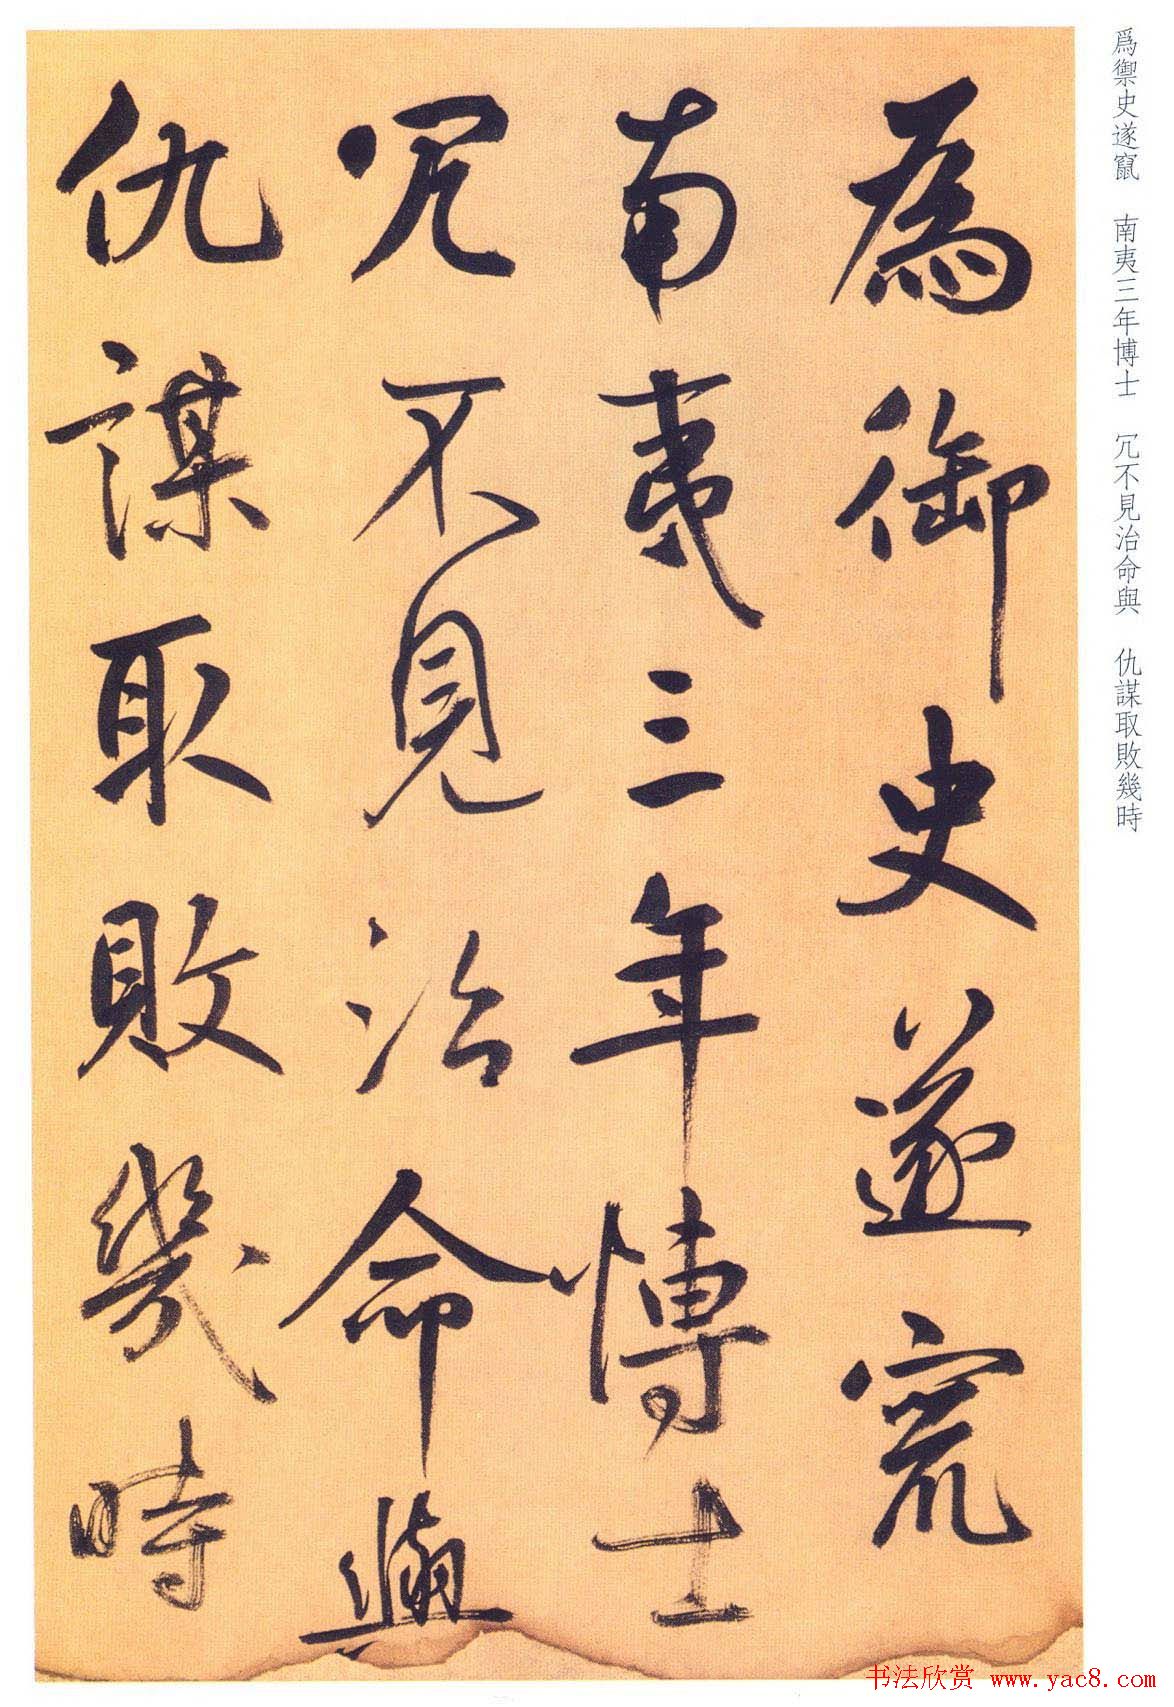 爲禦史遂竄　南夷三年博士　冗不見治命與　仇謀取敗幾時
為御史遂竄
南夷三年博士
冗不見治命與
仇謀取敗幾時
书法欣赏 www.yac8.com